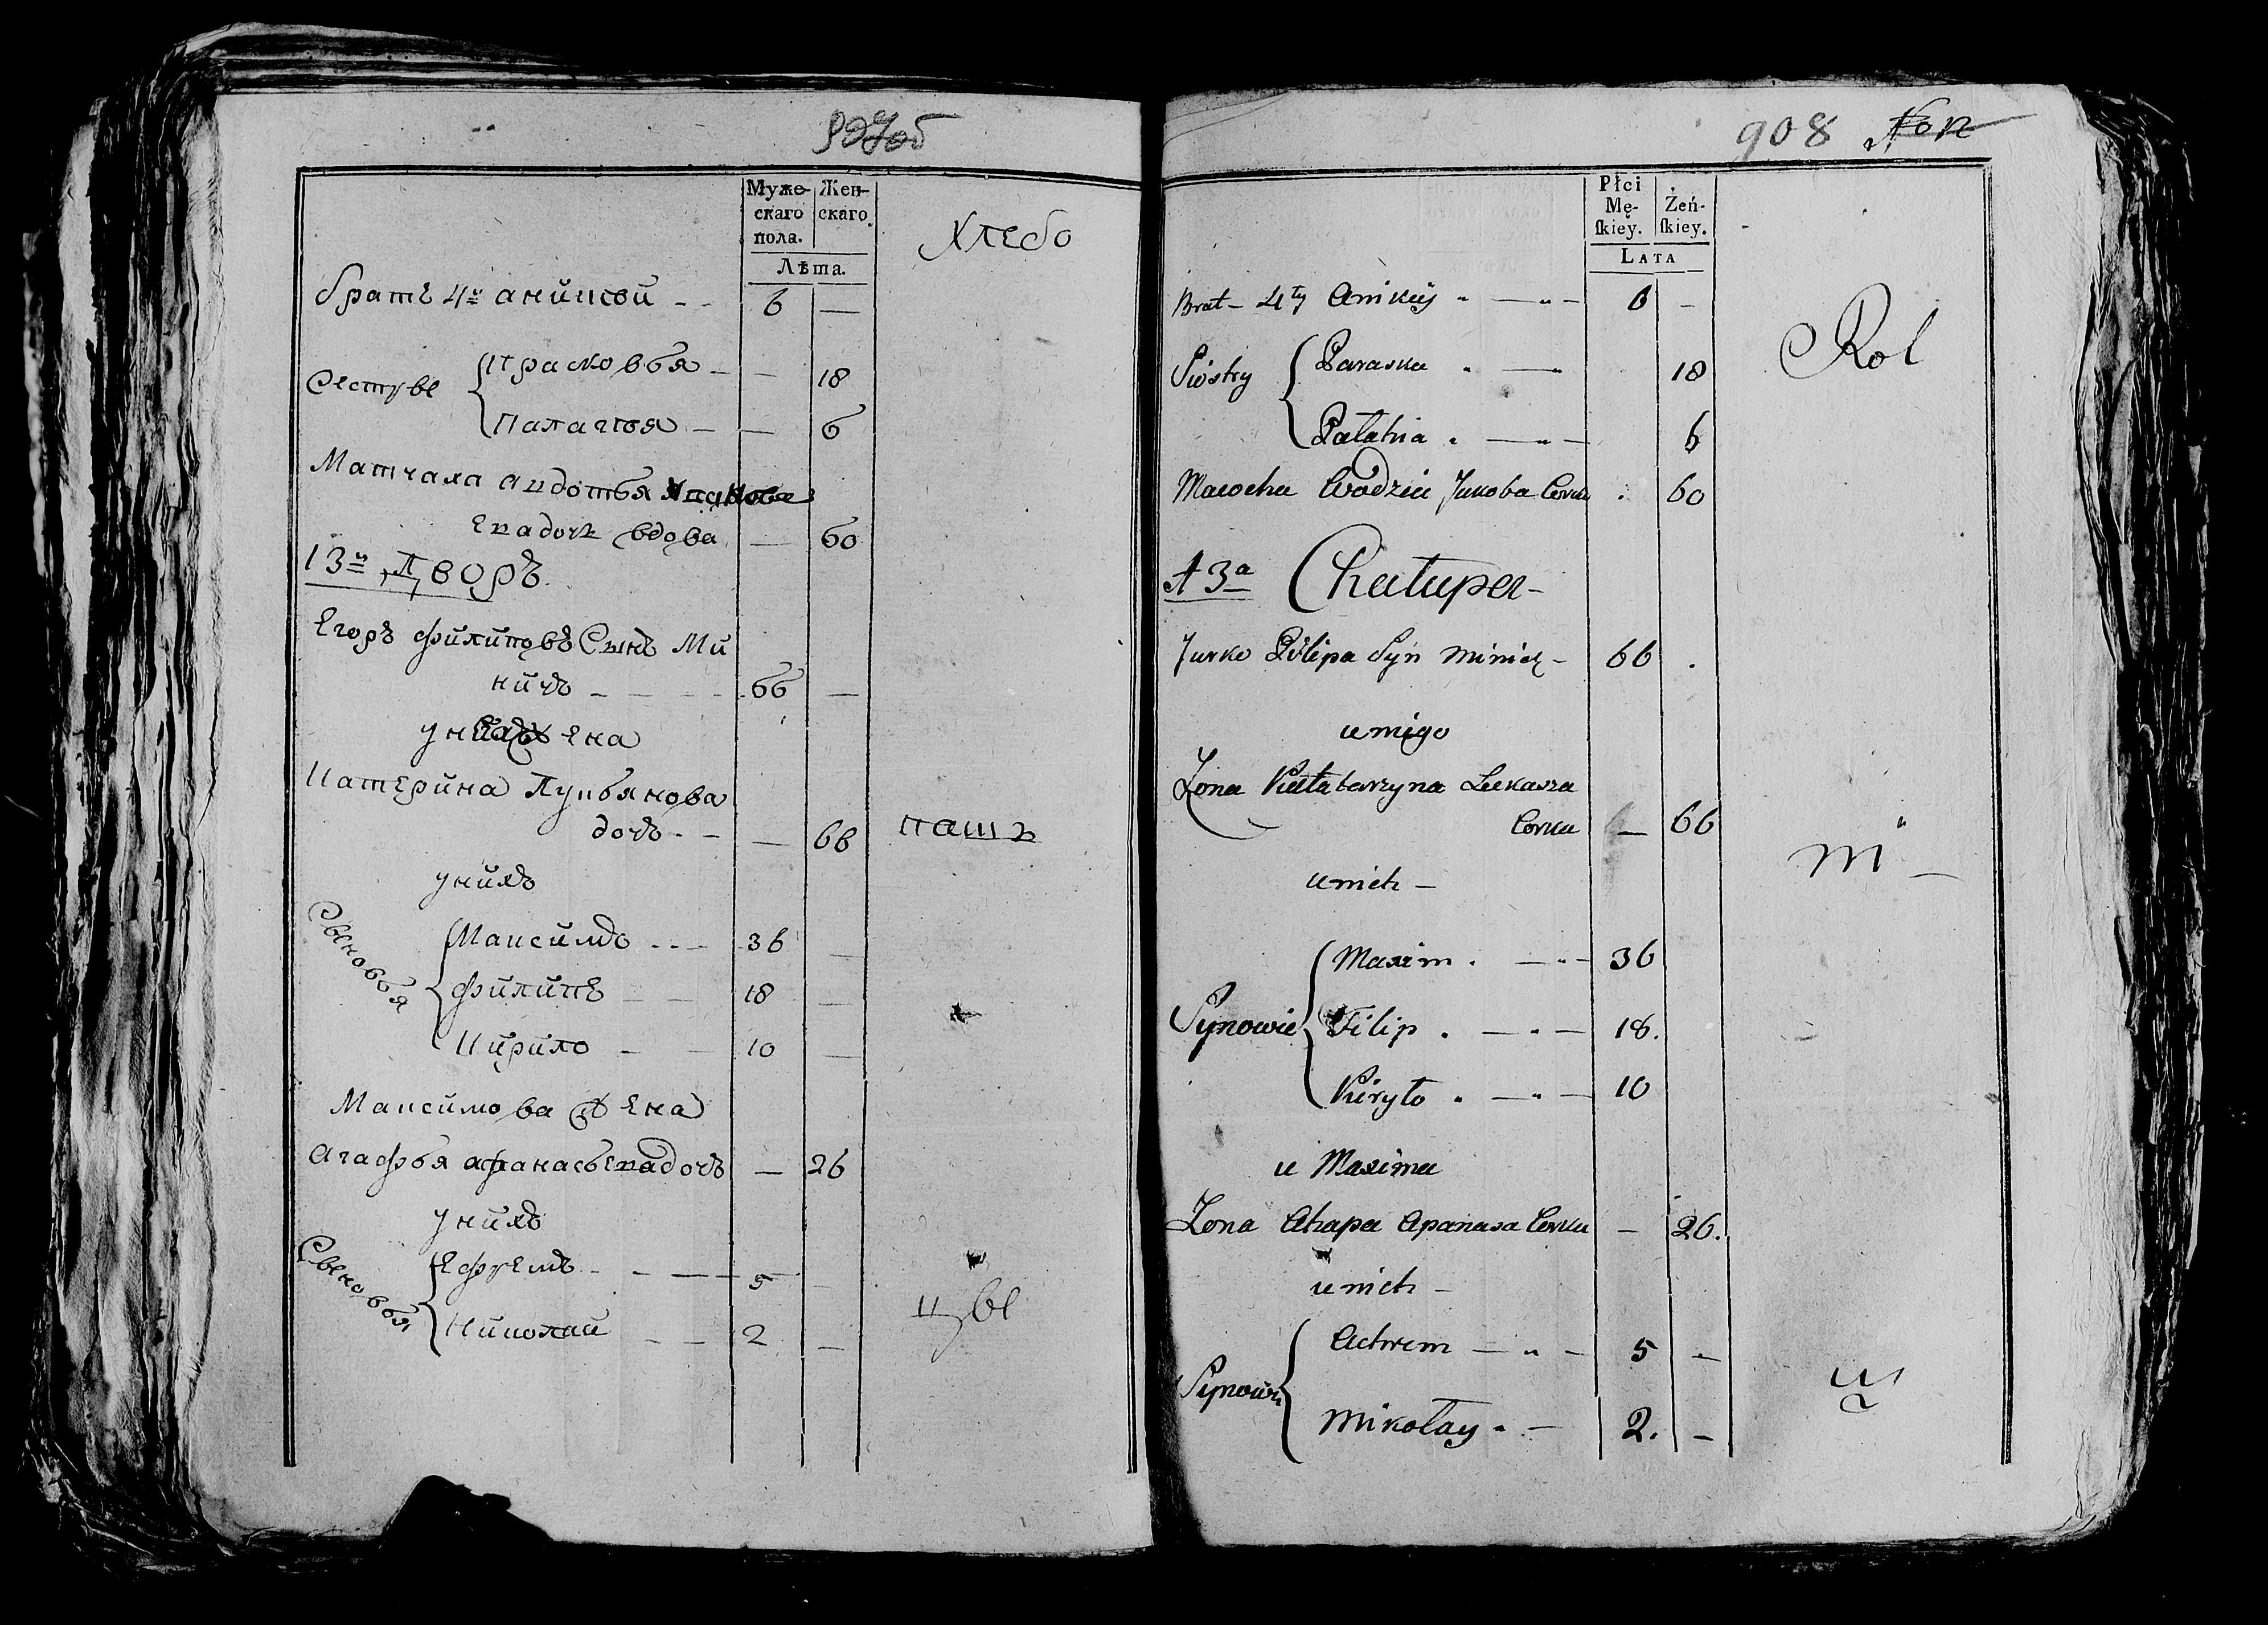 Муже-
скаго
пола.
Жен-
скаго
Лѣта.
Хлебо
братъ 4й аникей 6 —
Сестры Прасковья — 18
Палагея — 6
Матчаха авдотья
ева дочь вдова — 60
13й Дворъ.
Егоръ филиповъ Сынъ Ми
ничъ 66 —
у жена
Катерина Лукьянова
дочь — 66
паш
у нихъ
Сыновья
Максимъ 36 —
филипъ 18 —
Кирило 10 —
Максимова жена
агафья афанасьева дочь — 26
у нихъ
Сыновья
Ефремъ 5 —
Николай 2 —
цы
908
Płci
Mę-
ſkiey.
Żeń-
ſkiey.
LATA
Brat 4ty Anikiey 6 —
Rol
Siostry Paraska 18
Pałahia 6
Macocha Ewodzia Jakoba Corka 60
13a Chałupa
Jurko Pilipa Syn Minicz 66
u niego
Żona Katarzyna Łukasza
Corka — 66
m
u nich
Synowie
Maxim 36
Filip 18.
Kiryło 10
u Maxima
Żona Ahapa Apanasa Corka — 26.
u nich
Synowie
Achrem 5 —
Mikołay 2. —